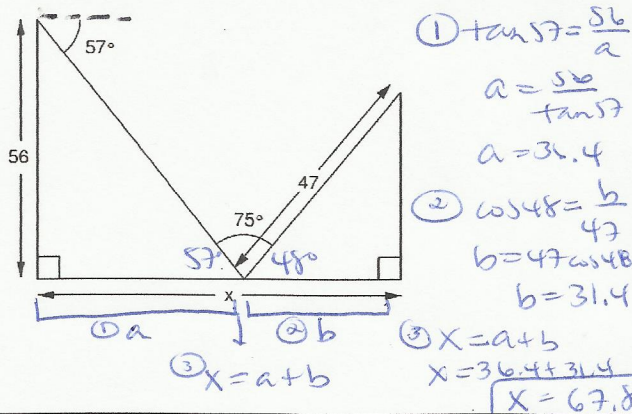 57°
56
47
75°
57° 48°
x
① a
② b
③ x = a + b
① tan 57 = 56/a
a = 56/tan 57
a = 36.4
② cos 48 = b/47
b = 47 cos 48
b = 31.4
③ x = a + b
x = 36.4 + 31.4
x = 67.8